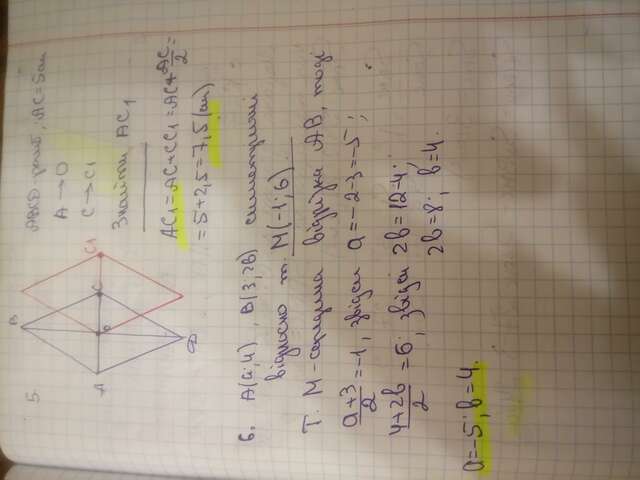 5.
B
C1
C
O
A
D
ABCD - ромб, AC = 5 см
A → O
C → C1
Знайти AC1
AC1 = AC + CC1 = AC + AC/2 =
= 5 + 2,5 = 7,5 (см)
6. A(a; 4), B(3; 2b) симетричні
відносно т. M(-1; 6).
Т. M - середина відрізка AB, тоді
a+3/2 = -1, звідси a = -2-3 = -5;
4+2b/2 = 6; звідси 2b = 12-4;
2b = 8; b = 4.
a = -5; b = 4.